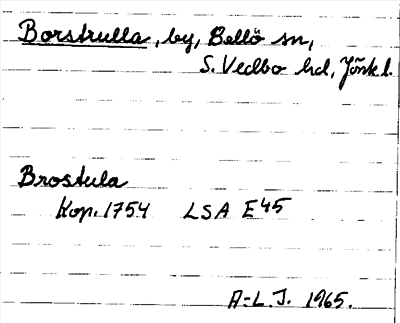 Borstrulla, by, Bellö sn,
S. Vedbo hd, Jönk.l.
Brostula
Kop. 1754 LSA E45
A-L.J. 1965.